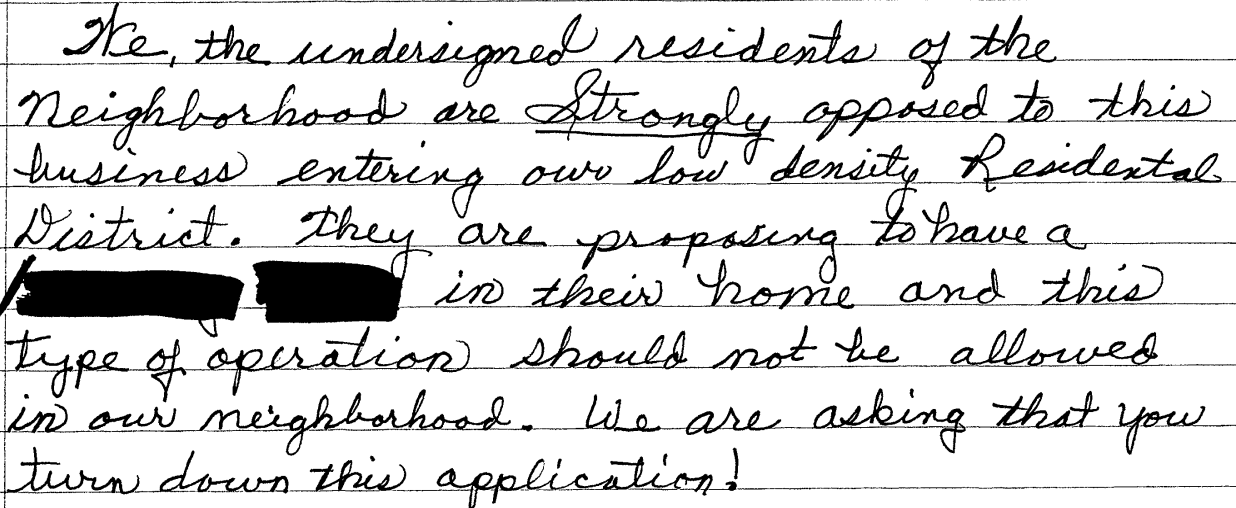 We, the undersigned residents of the
Neighborhood are Strongly opposed to this
business entering our low density Residental
District. They are proposing to have a
in their home and this
type of operation should not be allowed
in our neighborhood. We are asking that you
turn down this application!